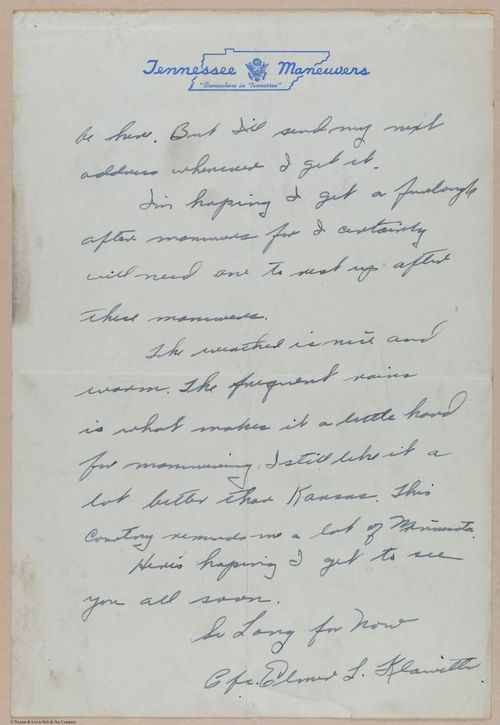 Tennessee Maneuvers
"Somewhere in Tennessee"
be here. But I'll send my next
address whenever I get it.
I'm hoping I get a furlough
after manuvers for I certainly
will need one to rest up after
these manuvers.
The weather is nice and
warm. The frequent rains
is what makes it a little hard
for manuvering. I still like it a
lot better than Kansas. This
country reminds me a lot of Minnesota.
Here's hoping I get to see
you all soon.
So Long for Now
Pfc. Elmer L. Klawitter